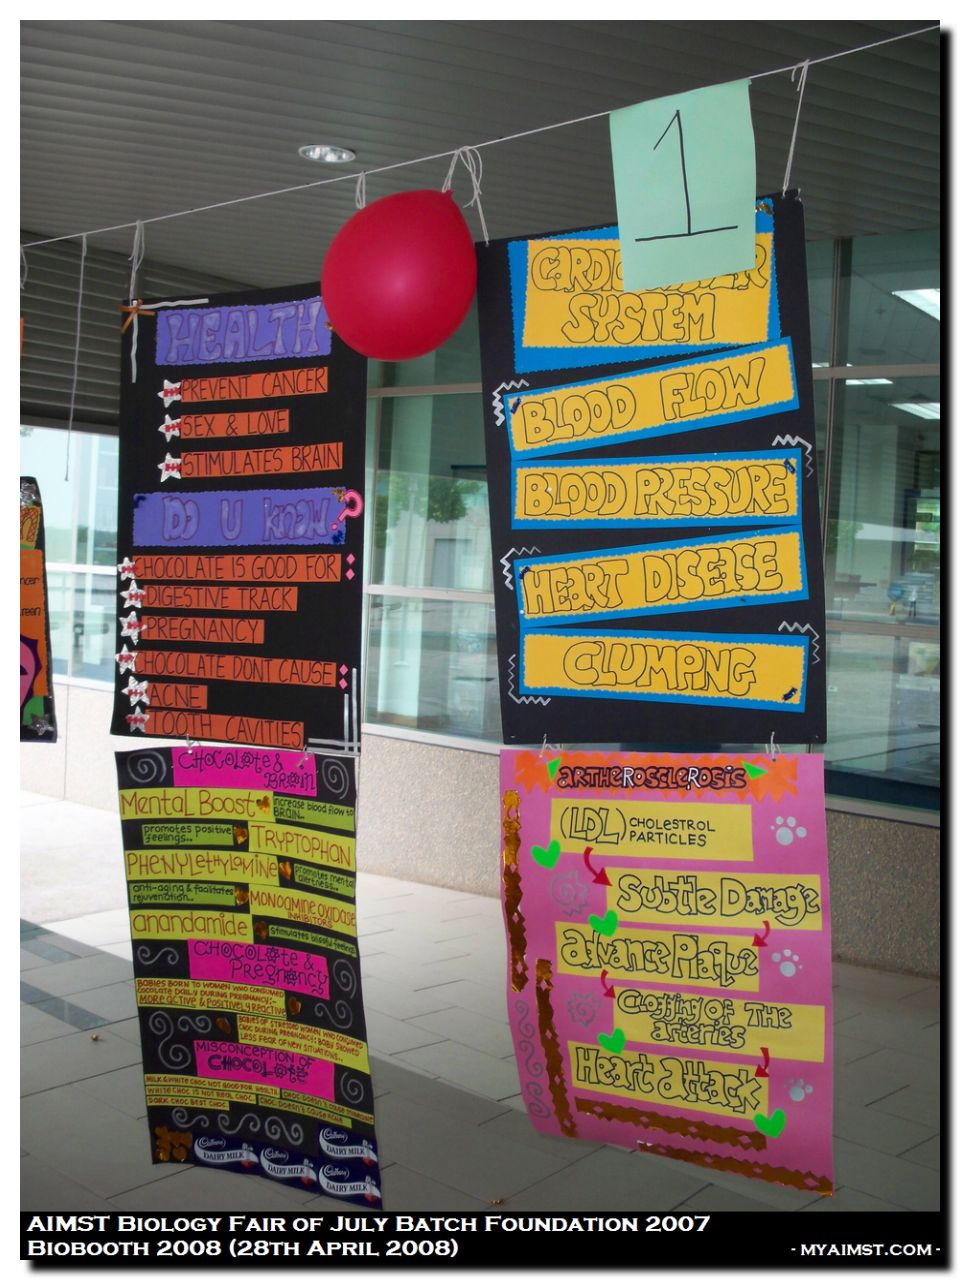 1
HEALTH
PREVENT CANCER
SEX & LOVE
STIMULATES BRAIN
DO U KNOW
?
CHOCOLATE IS GOOD FOR:
DIGESTIVE TRACK
PREGNANCY
CHOCOLATE DONT CAUSE:
ACNE
TOOTH CAVITIES
CHOCOLATE &
BRAIN
MENTAL BOOST
increase blood flow to
BRAIN..
promotes positive
feelings..
TRYPTOPHAN
PHENYLETHYLAMINE
promotes mental
alertness..
anti-aging & facilitates
rejuvenation..
MONOAMINE OXIDASE
INHIBITORS
anandamide
stimulates blissful feelings
CHOCOLATE &
PREGNANCY
BABIES BORN TO WOMEN WHO CONSUMED
COCOLATE DAILY DURING PREGNANCY:-
MORE ACTIVE & POSITIVELY REACTIVE
BABIES OF STRESSED WOMEN WHO CONSUMED
CHOC DURING PREGNANCY: BABY SHOWED
LESS FEAR OF NEW SITUATIONS..
MISCONCEPTION OF
CHOCOLATE
MILK & WHITE CHOC NOT GOOD FOR HEALTH
WHITE CHOC IS NOT REAL CHOC.
DARK CHOC BEST CHOC.
CHOC DOESN'T CAUSE
CHOC DOESN'T CAUSE ACNE
Cadbury
DAIRY MILK
Cadbury
DAIRY MILK
Cadbury
DAIRY MILK
Cadbury
DAIRY MILK
SYSTEM
BLOOD FLOW
BLOOD PRESSURE
HEART DISEASE
CLUMPING
ARTHEROSCLEROSIS
(LDL) CHOLESTROL
PARTICLES
Subtle Damage
advance Plaque
Clogging of The
arteries
Heart attack
AIMST Biology Fair of July Batch Foundation 2007
Biobooth 2008 (28th April 2008)
- myaimst.com -